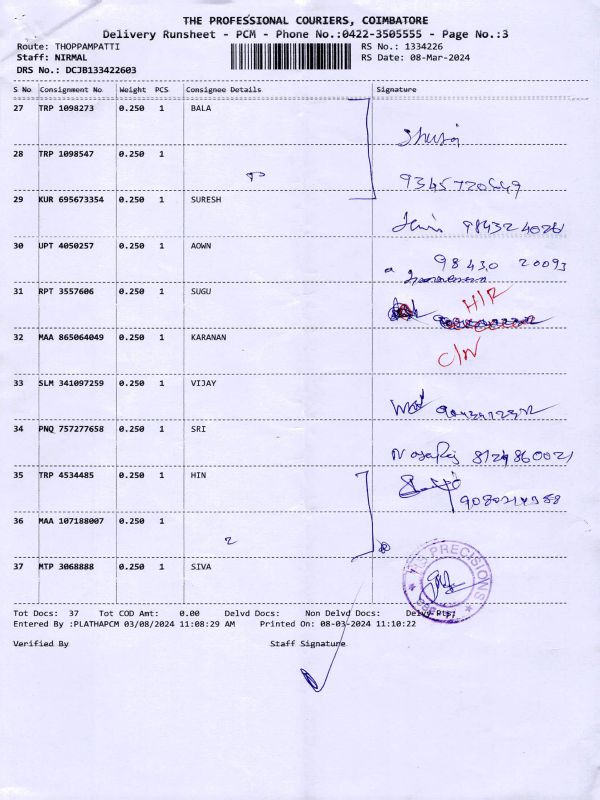 THE PROFESSIONAL COURIERS, COIMBATORE
Delivery Runsheet - PCM - Phone No.:0422-3505555 - Page No.:3
Route: THOPPAMPATTI RS No.: 1334226
Staff: NIRMAL RS Date: 08-Mar-2024
DRS No.: DCJB133422603
S No Consignment No Weight PCS Consignee Details Signature
27 TRP 1098273 0.250 1 BALA
28 TRP 1098547 0.250 1
9345720649
29 KUR 695673354 0.250 1 SURESH
984324026
30 UPT 4050257 0.250 1 AOWN
98430 20093
31 RPT 3557606 0.250 1 SUGU
H/R
32 MAA 865064049 0.250 1 KARANAN
C/N
33 SLM 341097259 0.250 1 VIJAY
34 PNQ 757277658 0.250 1 SRI
Nagaraj 8124860021
35 TRP 4534485 0.250 1 HIN
36 MAA 107188007 0.250 1
2
37 MTP 3068888 0.250 1 SIVA
PRECISIONS
Tot Docs: 37 Tot COD Amt: 0.00 Delvd Docs: Non Delvd Docs: Delvy Pts:
Entered By :PLATHAPCM 03/08/2024 11:08:29 AM Printed On: 08-03-2024 11:10:22
Verified By Staff Signature